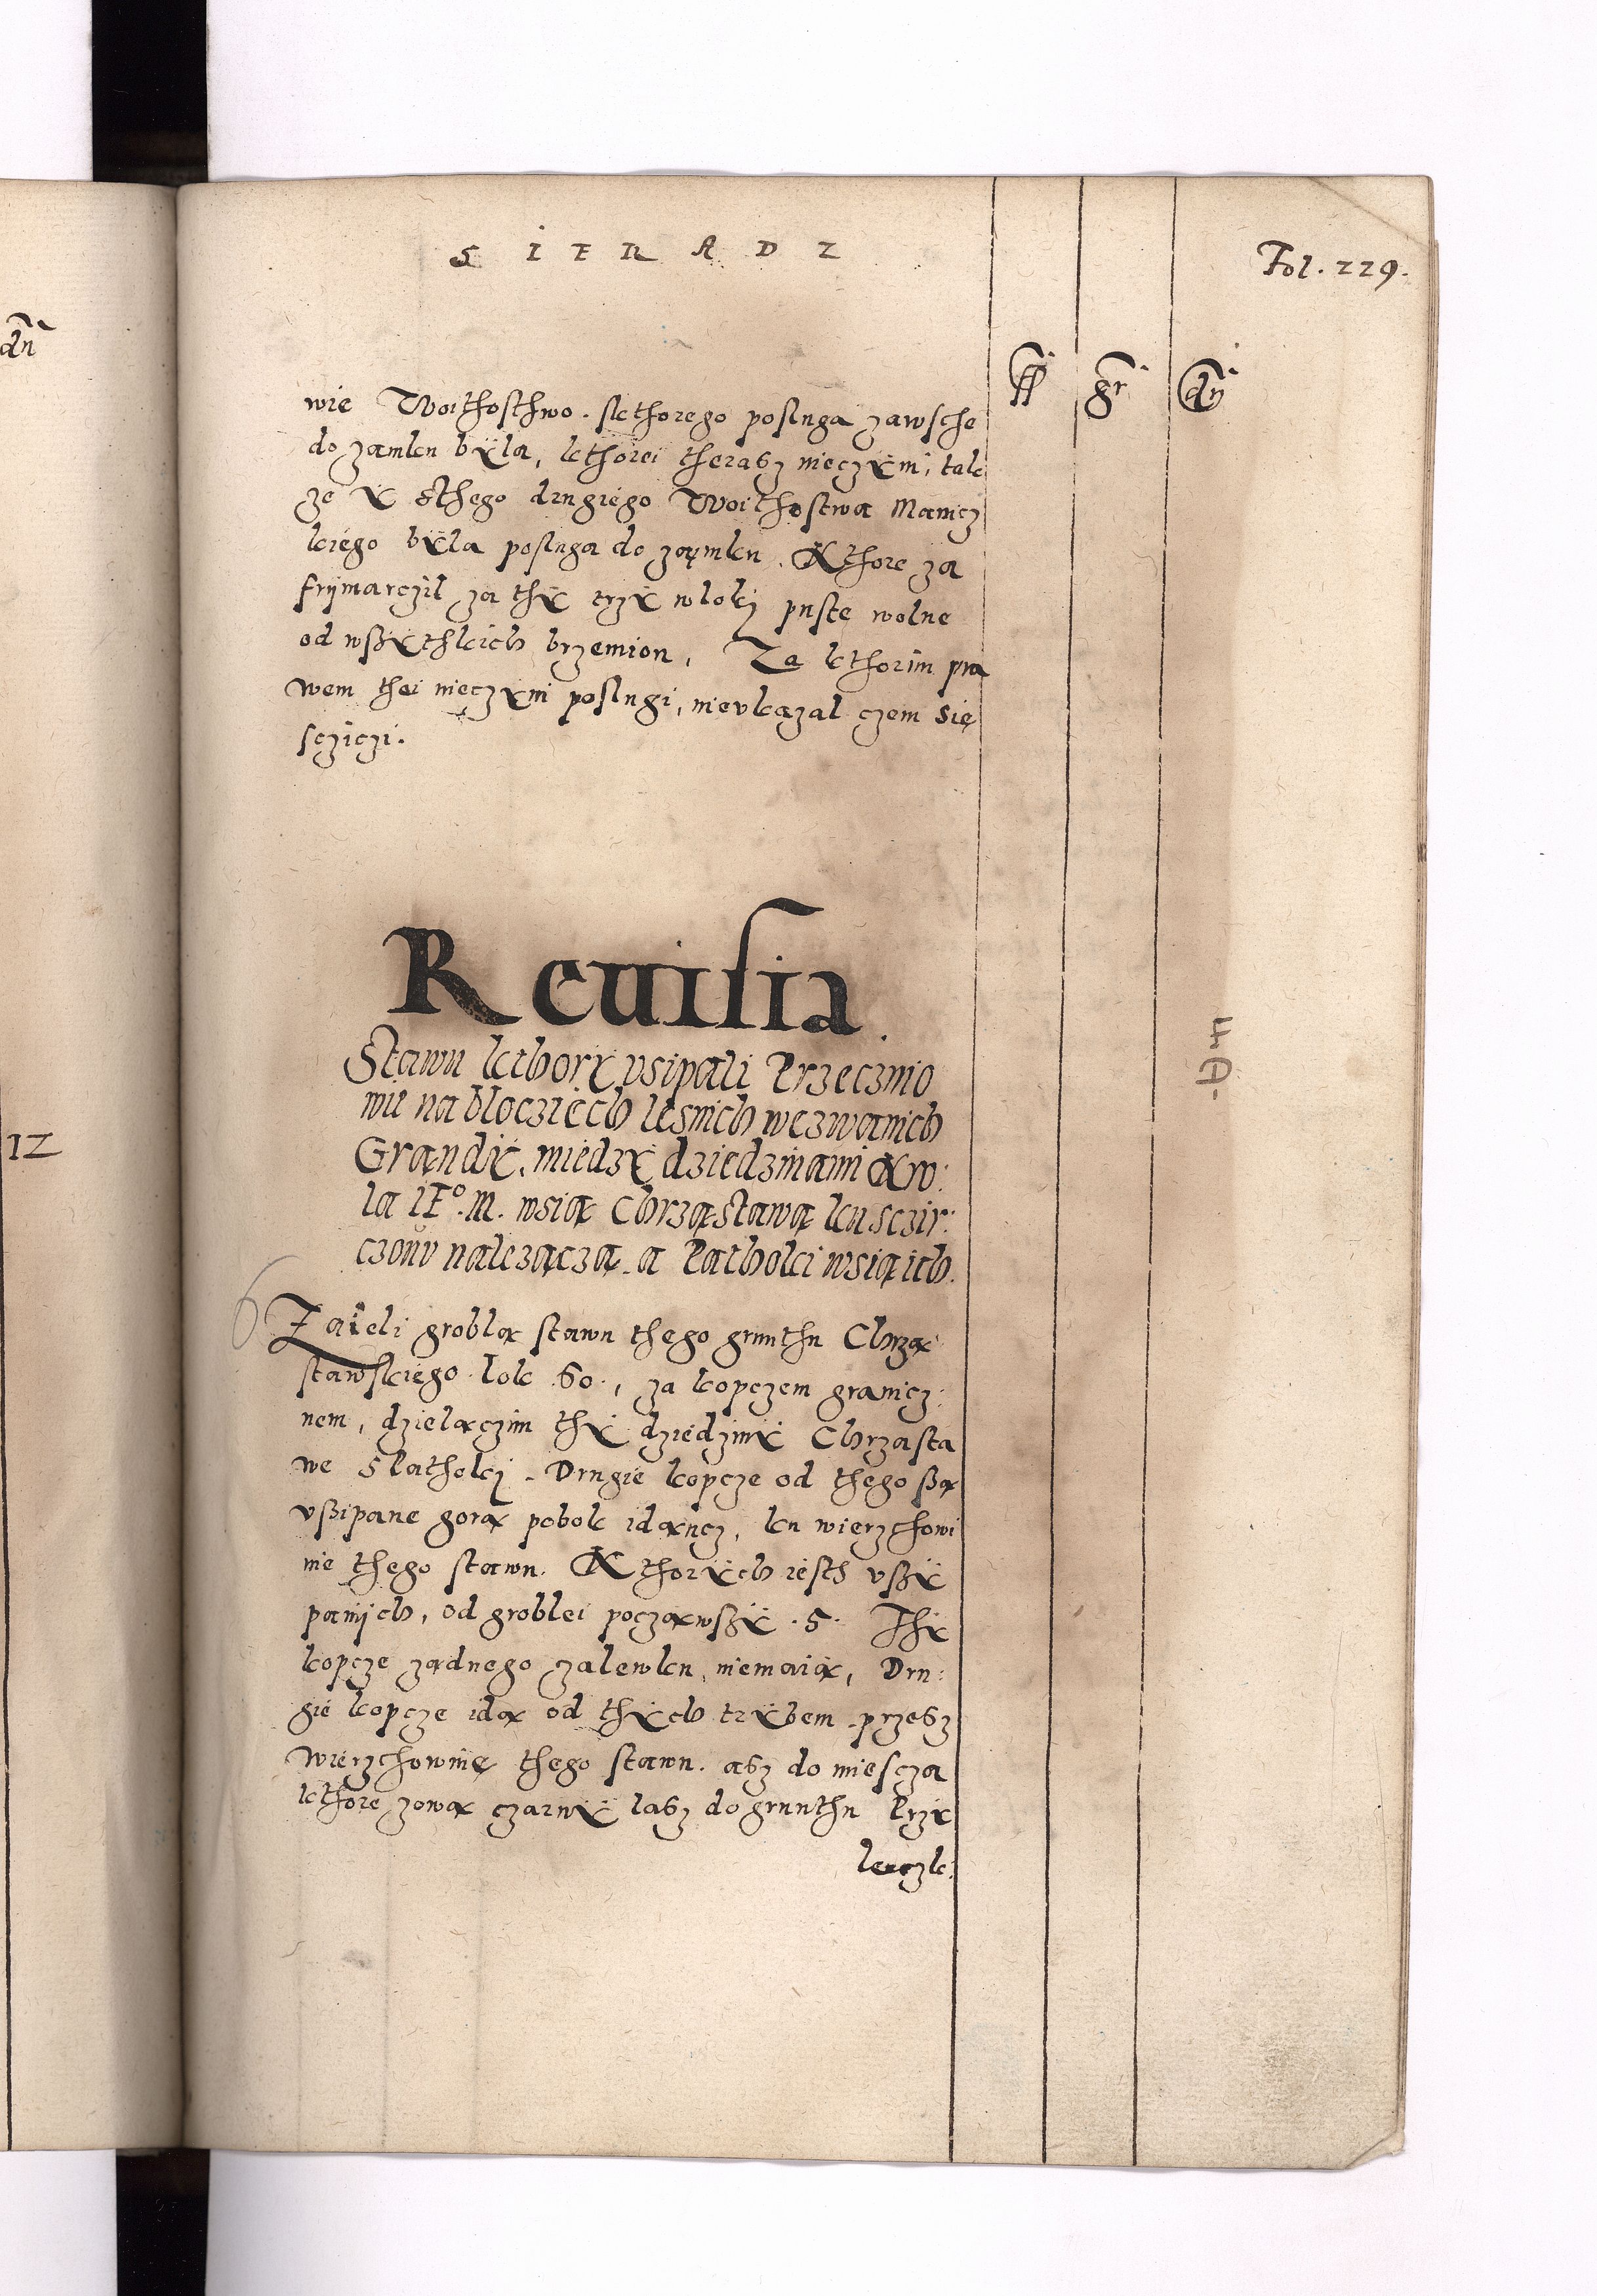 SIERADZ
Fol. 229.
ff gr dn
wie Woithosthwo. skthorego posluga zawsche
do zamku byla, kthorei therasz nieczyni, tak
ze y sthego drugiego Woithostwa Manicz
kiego byla posluga do zamku. Kthore za
frijmarczil za thy trzy wloky puste wolne
od wszythkich brzemion, Za kthorim pra
wem thei nieczyni poslugi, nievkazal czem się
scziczi.
Reuisia
Stawu kthory vsipali Przecznio
wii na blocziech lesnich wezwanich
Grandy, miedzy dziedzinami Kro:
la IEº. M. wsią Chrząstawą ku sczir:
czowu należączą a Pathoki wsią ich.
Zaięli groblą stawu thego grunthu Chrzą
stawskiego lok 60, za kopczem granicz:
nem, dzielączim thy dziedziny Chrzasta
we s Pathoky. Drugie kopcze od thego szą
vszipane gorą pobok idąncz, ku wierzchowi
nie thego stawu. Kthorych iesth vszy
panijch, od groblei począwszy .5. Thy
kopcze zadnego zalewku niemaią, Dru:
gie kopcze idą od thych trybem przesz
wierzchowinę thego stawu. asz do miescza
kthore zową czarny lasz do grunthu Przy